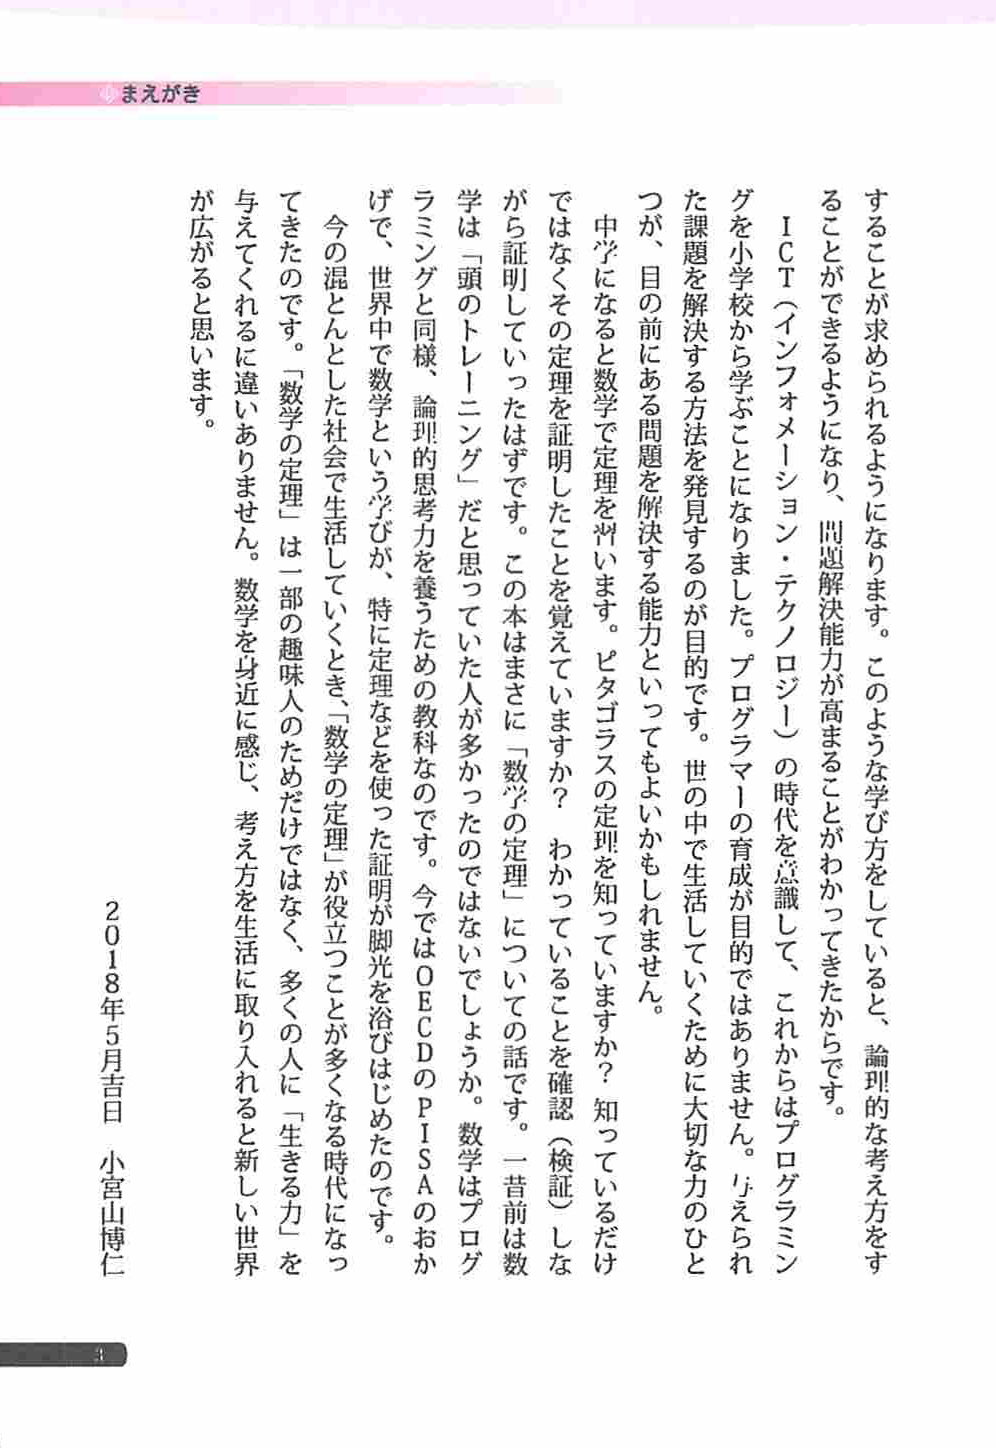 まえがき
することが求められるようになります。このような学び方をしていると、論理的な考え方をす
ることができるようになり、問題解決能力が高まることがわかってきたからです。
ICT（インフォメーション・テクノロジー）の時代を意識して、これからはプログラミン
グを小学校から学ぶことになりました。プログラマーの育成が目的ではありません。与えられ
た課題を解決する方法を発見するのが目的です。世の中で生活していくために大切な力のひと
つが、目の前にある問題を解決する能力といってもよいかもしれません。
中学になると数学で定理を習います。ピタゴラスの定理を知っていますか？　知っているだけ
ではなくその定理を証明したことを覚えていますか？　わかっていることを確認（検証）しな
がら証明していったはずです。この本はまさに「数学の定理」についての話です。一昔前は数
学は「頭のトレーニング」だと思っていた人が多かったのではないでしょうか。数学はプログ
ラミングと同様、論理的思考力を養うための教科なのです。今ではOECDのPISAのおか
げで、世界中で数学という学びが、特に定理などを使った証明が脚光を浴びはじめたのです。
今の混とんとした社会で生活していくとき、「数学の定理」が役立つことが多くなる時代になっ
てきたのです。「数学の定理」は一部の趣味人のためだけではなく、多くの人に「生きる力」を
与えてくれるに違いありません。数学を身近に感じ、考え方を生活に取り入れると新しい世界
が広がると思います。
2018年5月吉日　小宮山博仁
3